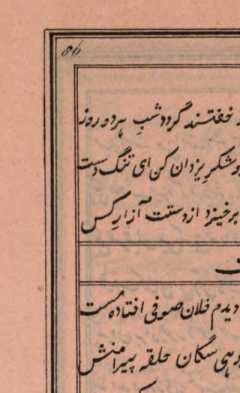 خفتند گرد و شب هر دو روز
و شکر یزدان کن ای تنگ دست
برخیزد از دستت آزار کس
دیدم فلان صوفی افتاده مست
سگان حلقه پیرامنش